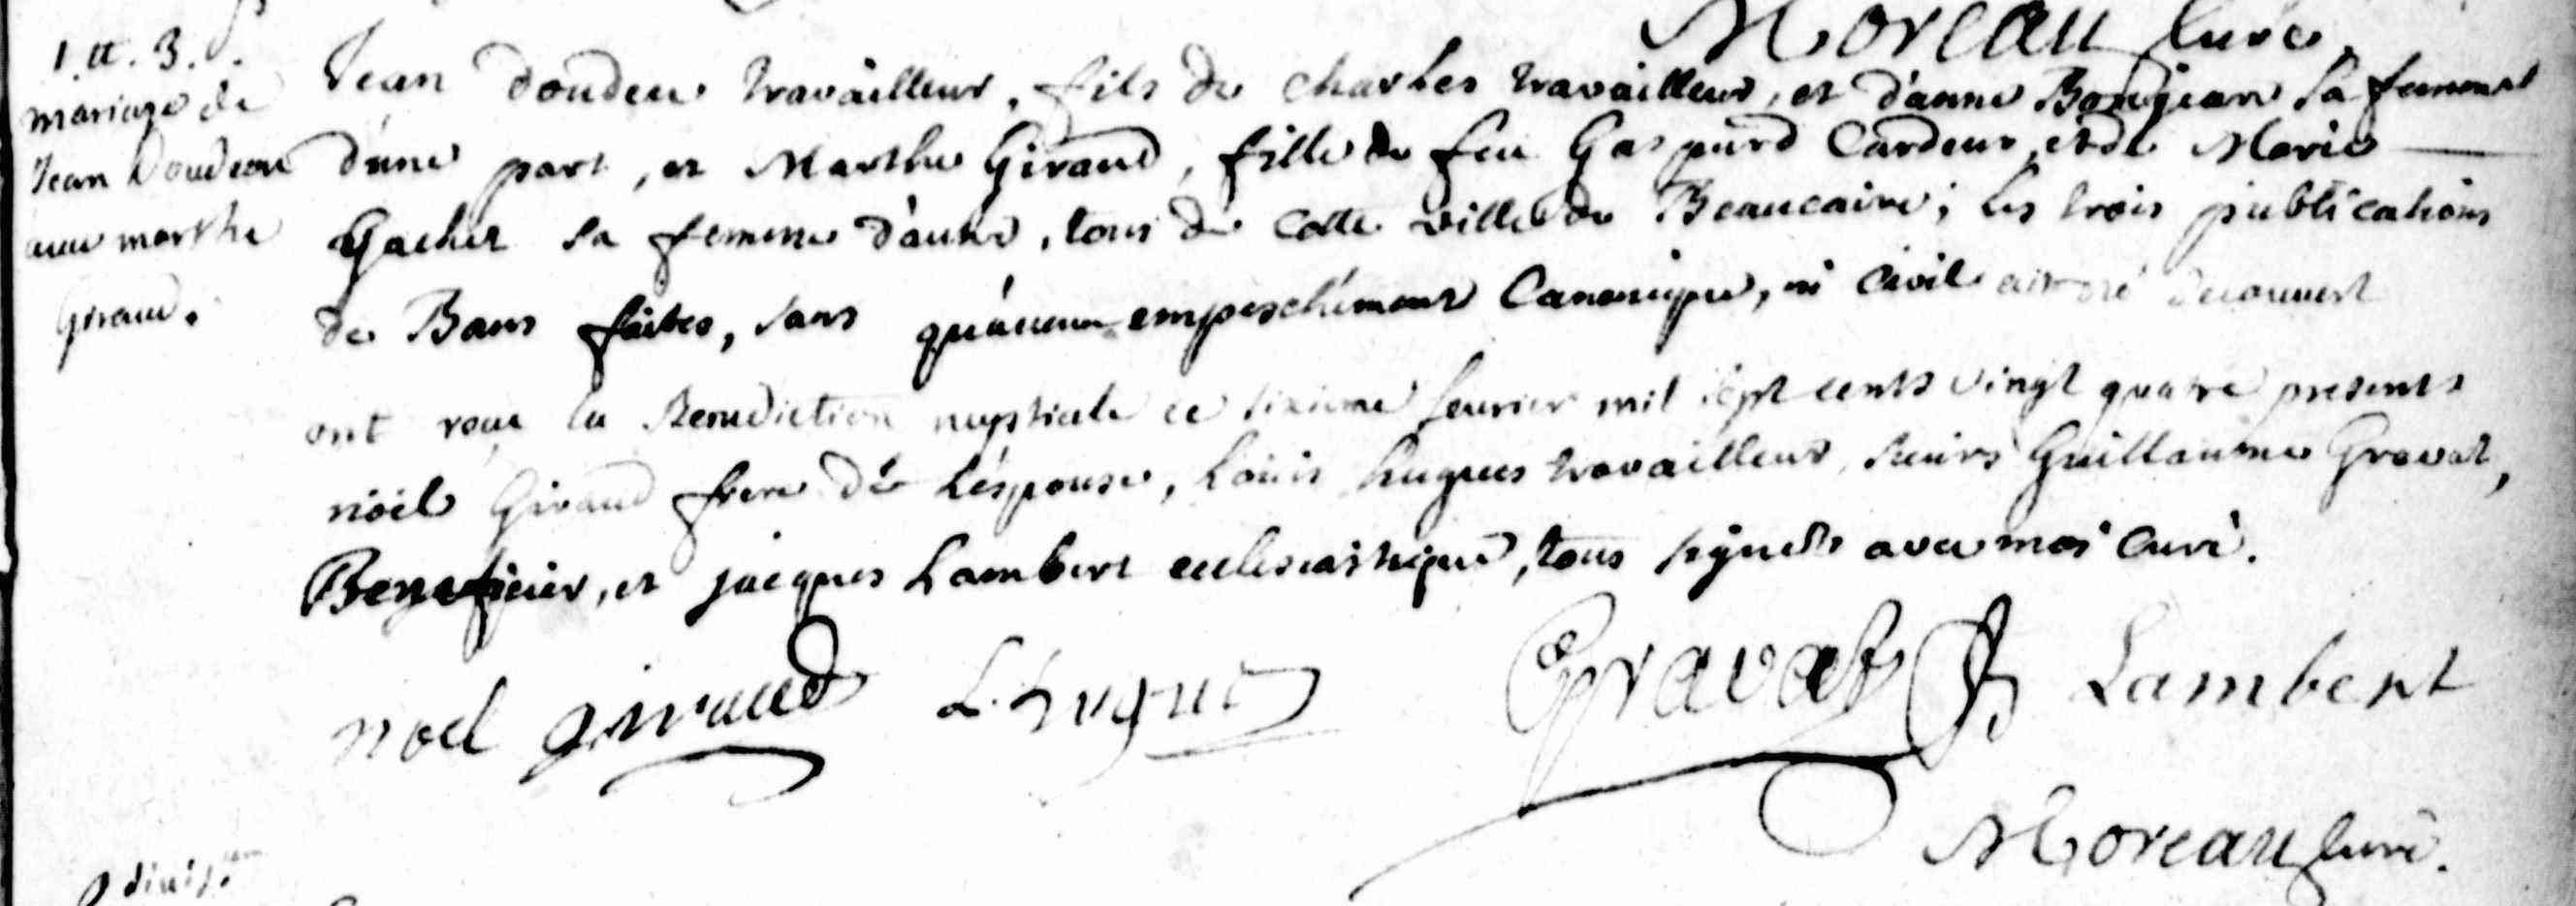 Moreau Curé.
1. et. 3.
mariage de
Jean Doudeau
avec marthe
Giraud.
Jean doudeu travailleur, fils de charles travailleur, et d'anne Bonjean sa femme
d'une part, et Marthe Giraud, fille de feu Gaspard Cardeur, et de Marie
Gachet sa femme d'autre, tous de cette ville de Beaucaire; les trois publications
de Bans faites, sans qu'aucun empeschement Canonique, ni Civil ait été decouvert
ont reçu la Benediction nuptiale ce sixieme feurier mil sept cents vingt quatre presents
nöel Giraud frere de l'espouse, Loüis hugues travailleur, sieurs Guillaume Gravat,
Beneficier, et jacques Lambert ecclesiastique, tous signés avec moi Curé.
noel giraud L. hugues Gravat Lambert
Moreau Curé.